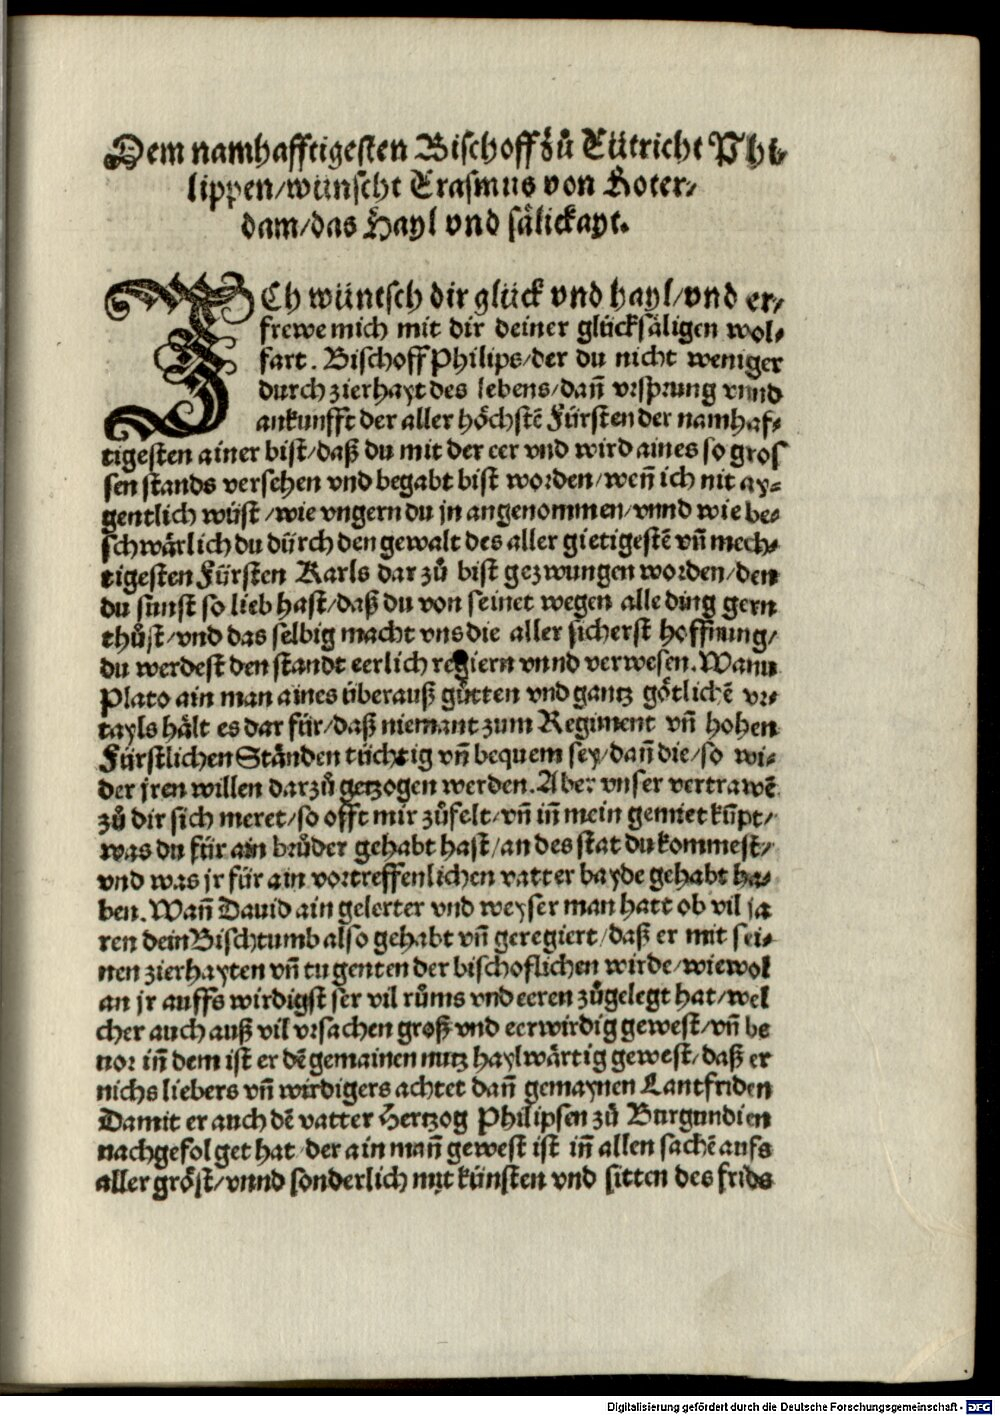 Dem namhafftigesten Bischoff zů Eütricht Phi-
lippen/wünscht Erasmus von Roter-
dam/das Hayl vnd sälickayt.
ICh wüntsch dir glück vnd hayl/vnd er-
frewe mich mit dir deiner glücksäligen wol-
fart. Bischoff Philips/der du nicht weniger
durch zierhayt des lebens/dañ vrsprung vnnd
ankunfft der aller höchstē Fürsten der namhaf-
tigesten ainer bist/daß du mit der eer vnd wird aines so gros
sen stands versehen vnd begabt bist worden/weñ ich nit ay-
gentlich wüst/wie vngern du jn angenommen/vnnd wie be-
schwärlich du dürch den gewalt des aller gietigestē vñ mech-
tigesten Fürsten Karls dar zů bist gezwungen worden/den
du sunst so lieb hast/daß du von seinet wegen alle ding gern
thůst/vnd das selbig macht vns die aller sicherst hoffnung/
du werdest den standt eerlich regiern vnnd verwesen. Wann
Plato ain man aines überauß gůtten vnd gantz götlichē vr-
tayls hält es dar für/daß niemant zum Regiment vñ hohen
Fürstlichen Ständen tüchtig vñ bequem sey/dañ die/so wi-
der jren willen darzů getzogen werden. Aber vnser vertrawē
zů dir sich meret/so offt mir zůfelt/vñ iñ mein gemiet kūpt/
was du für ain brůder gehabt hast/an des stat du kommest/
vnd was jr für ain vortreffenlichen vatter bayde gehabt ha-
ben. Wañ Dauid ain gelerter vnd weyser man hatt ob vil ja
ren dein Bischtumb also gehabt vñ geregiert/daß er mit sei-
nen zierhayten vñ tugenten der bischoflichen wirde/wiewol
an jr auffs wirdigst ser vil růms vnd eeren zůgelegt hat/wel
cher auch auß vil vrsachen groß vnd eerwirdig gewest/vñ be
uor iñ dem ist er dē gemainen nutz haylwärtig gewest/daß er
nichs liebers vñ wirdigers achtet dañ gemaynen Lantfriden
Damit er auch dē vatter Hertzog Philipsen zů Burgundien
nachgefolget hat/der ain mañ gewest ist iñ allen sachē aufs
aller gröst/vnnd sonderlich mit künsten vnd sitten des frids
Digitalisierung gefördert durch die Deutsche Forschungsgemeinschaft - DFG